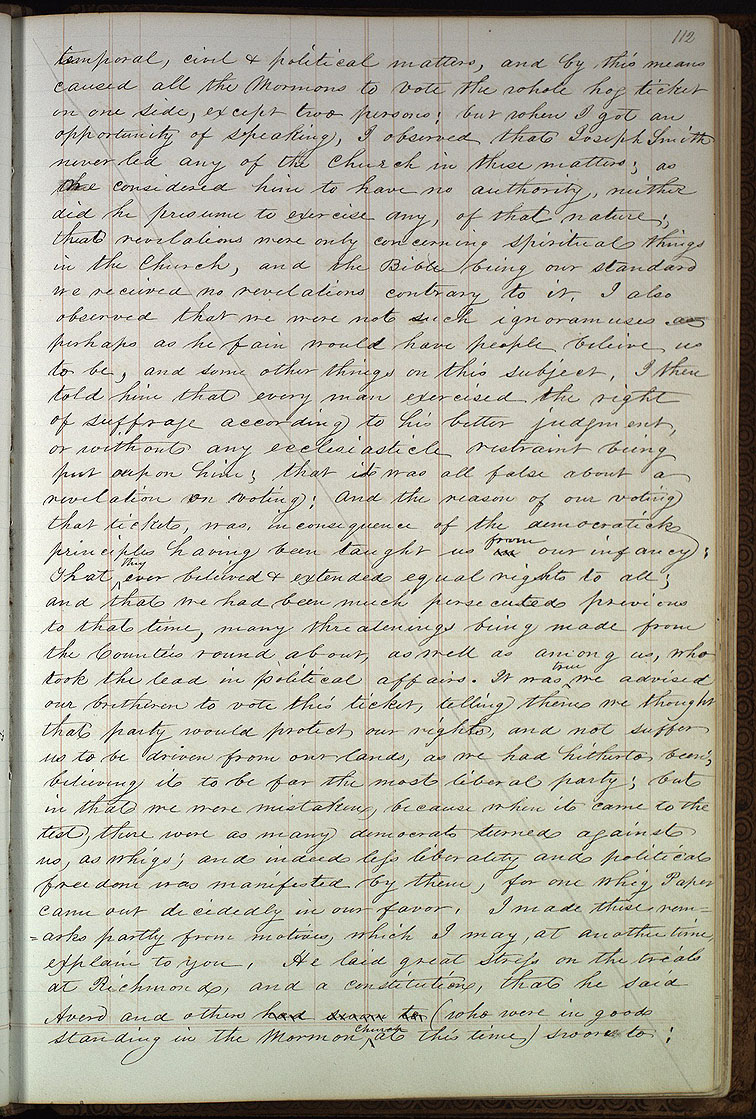 112
temporal, civil & political matters, and by this means
caused all the Mormons to vote the whole hog ticket
on one side, except two persons; but when I got an
opportunity of speaking, I observed that Joseph Smith
never led any of the Church in these matters; as
considered him to have no authority, neither
did he presume to exercise any, of that nature;
that revelations were only concerning spiritual things
in the Church, and the Bible being our standard
we received no revelations contrary to it. I also
observed that we were not such ignoramuses as
perhaps as he fain would have people believe us
to be, and some other things on this subject. I then
told him that every man exercised the right
of suffrage according to his better judgment,
or without any ecclesiasticle restraint being
put upon him; that it was all false about a
revelation on voting; And the reason of our voting
that ticket, was, in consequence of the democratick
principles having been taught us in from our infancy;
That they ever believed & extended equal rights to all;
and that we had been much persecuted previous
to that time, many threatenings being made from
the Counties round about, as well as among us, who
took the lead in political affairs. It was true we advised
our bretheren to vote this ticket, telling them we thought
that party would protect our rights, and not suffer
us to be driven from our lands, as we had hitherto been;
believing it to be far the most liberal party; but
in that we were mistaken, because when it came to the
test, there were as many democrats turned against
us, as whigs; and indeed less liberality and political
freedom was manifested by them, for one whig Paper
came out decidedly in our favor. I made these rem=
=arks partly from motives, which I may, at another time,
explain to you. He laid great stress on the treats
at Richmond, and a constitution, that he said
Averd and others had sworn to (who were in good
standing in the Mormon Church at this time) swore to;